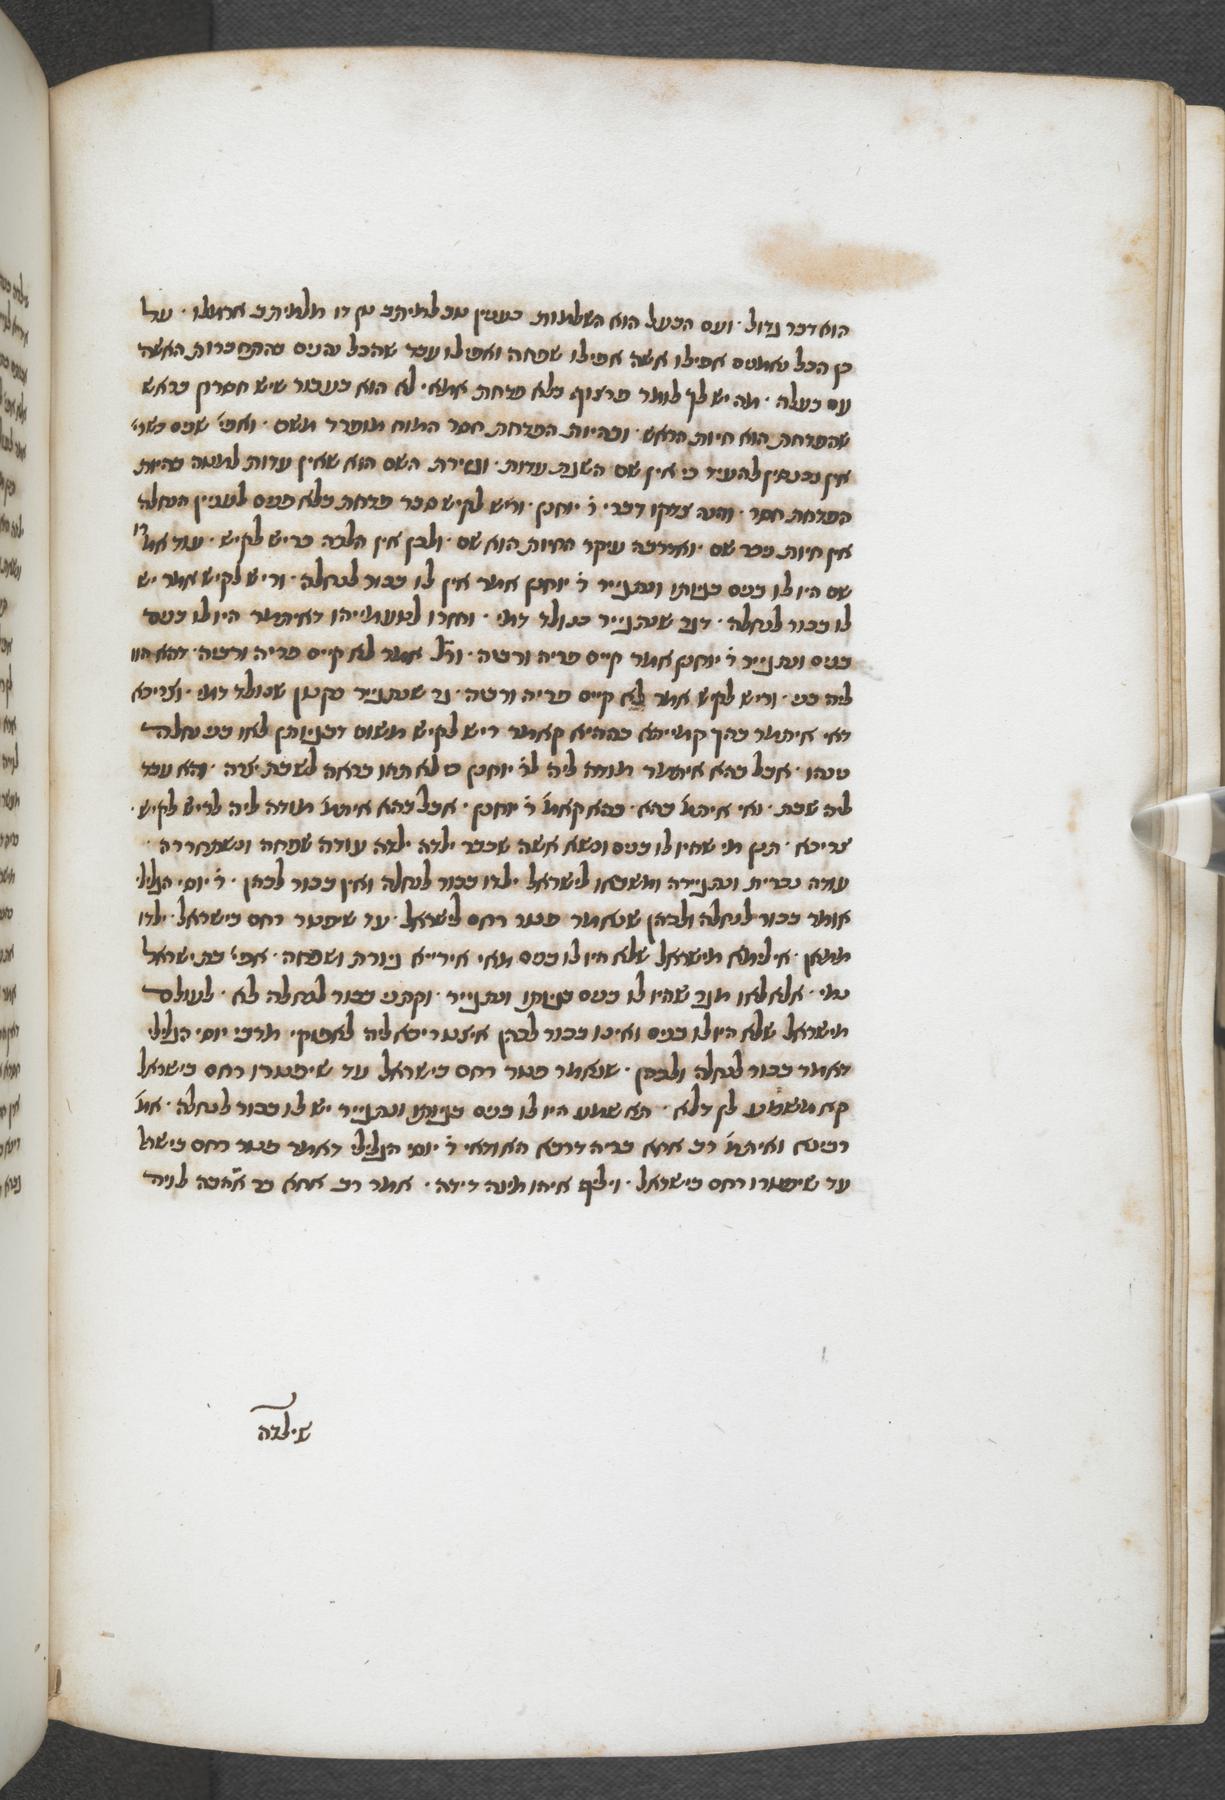 הוא דבר גדול · ועם הבעל הוא השלמות כענין עד
כן הכל נאמנים אפילו אשה אפילו שפחה ואפילו עבד שהכל נהנים בהתחברות האשה
עם בעלה · מה יש לך לומר פרצוף בלא פדחת אמאי לא הוא בעבור שיש חסרון בראש
שהפדחת הוא חיות הראש · ובהיות הפדחת חסר המוח מופרד משם · ואפי׳ שבם בשרי׳
אין נכנסין להעיד כי אין שם השגת עדות · וגזירת השם הוא שאין עדות למטה בהיות
הפדחת חסר · והנה צדקו דברי ר׳ יוחנן · וריש לקיש סבר פדחת בלא פנים לענין הנחלה
אין חיות ניכר שם · ואדרבה עיקר החיות הוא שם · ולכן אין הלכה כריש לקיש · עוד אמרו
שם היו לו בנים בגיותו ונתגייר ר׳ יוחנן אמר אין לו בכור לנחלה · וריש לקיש אמר יש
לו בכור לנחלה · דגר שנתגייר כנולד דמי · ואזדו לטעמייהו דאיתמר היו לו בנים
בגיים ונתגייר ר׳ יוחנן אמר קיים פריה ורביה · ור״ל אמר לא קיים פריה ורביה · דהא הוו
ליה בני · וריש לקיש אמר לא קיים פריה ורביה · גר שנתגייר כקטן שנולד דמי · וצריכא
דאי איתמר בהך קמייתא בההיא קאמר ריש לקיש משום דבגיותן לאו בני נחלה
נינהו · אבל בהא אימר מודה ליה לר׳ יוחנן ס לא תהו בראה לשבת יצרה · והא עבד
ליה שבת · ואי איתמ׳ בהא · בהא קאמ׳ ר׳ יוחנן · אבל בהא אימ׳ מודה ליה לריש לקיש ·
צריכא · תנן מי שהיו לו בנים ונשא אשה שכבר ילדה ילדה עודה שפחה ונשתחררה ·
עודה נכרית ונתגיירה ומשבאו לישראל ילדו בכור לנחלה ואין בכור לכהן · ר׳ יוסי הגלילי
אומר בכור לנחלה ולכהן שנאמר פטר רחם לישראל · עד שיפטר רחם בישראל · ילדו
ממאן · אילימא מישראל שלא היו לו בנים מאי אירייא גיורת ושפחה · אפי׳ בת ישראל
נמי · אלא לאו מגר שהיו לו בנים בגיותו ונתגייר · וקתני בכור לנחלה לא · לעולם
מישראל שלא היו לו בנים ואינו בכור לכהן איצטריכא ליה לאפוקי מדר׳ יוסי הגלילי
דאמר בכור לנחלה ולכהן · שנאמר פטר רחם בישראל עד שיפטרו רחם בישראל
קא משמע לן דלא · תא שמע היו לו בנים בגיותו ונתגייר יש לו בכור לנחלה · אמ׳
רבינא ואיתי׳ רב אחא בריה דרבא הא ודאי ר׳ יוסי הגלילי דאמר פטר רחם בישר׳
עד שיפטרו רחם בישראל · ויליף איהו מינה דידה · אמר רב אחא בר אהבה לויה
שילדה